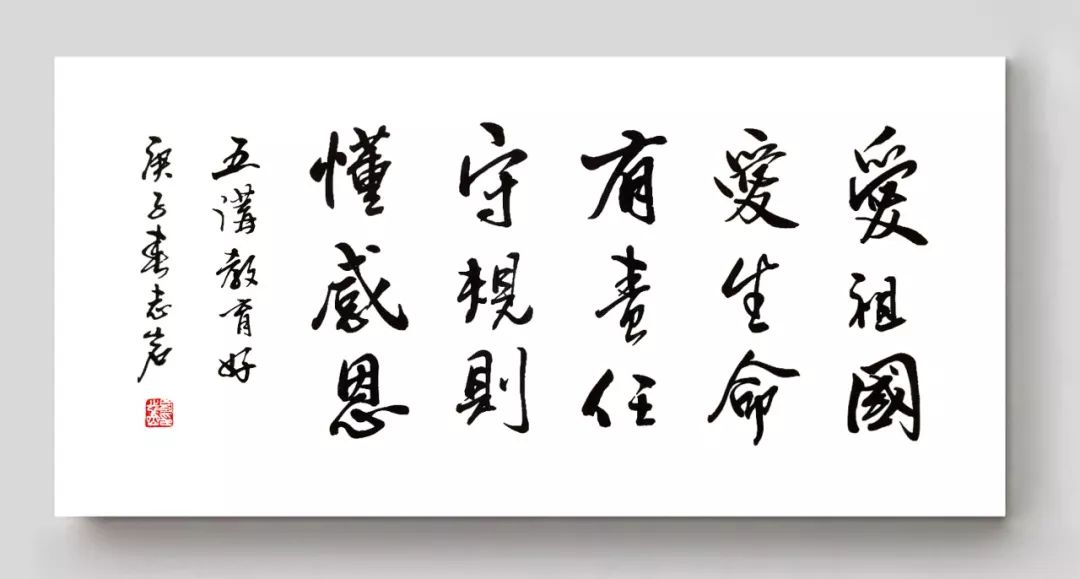 愛祖國
愛生命
有責任
守規則
懂感恩
五講教育好
庚子春志岩